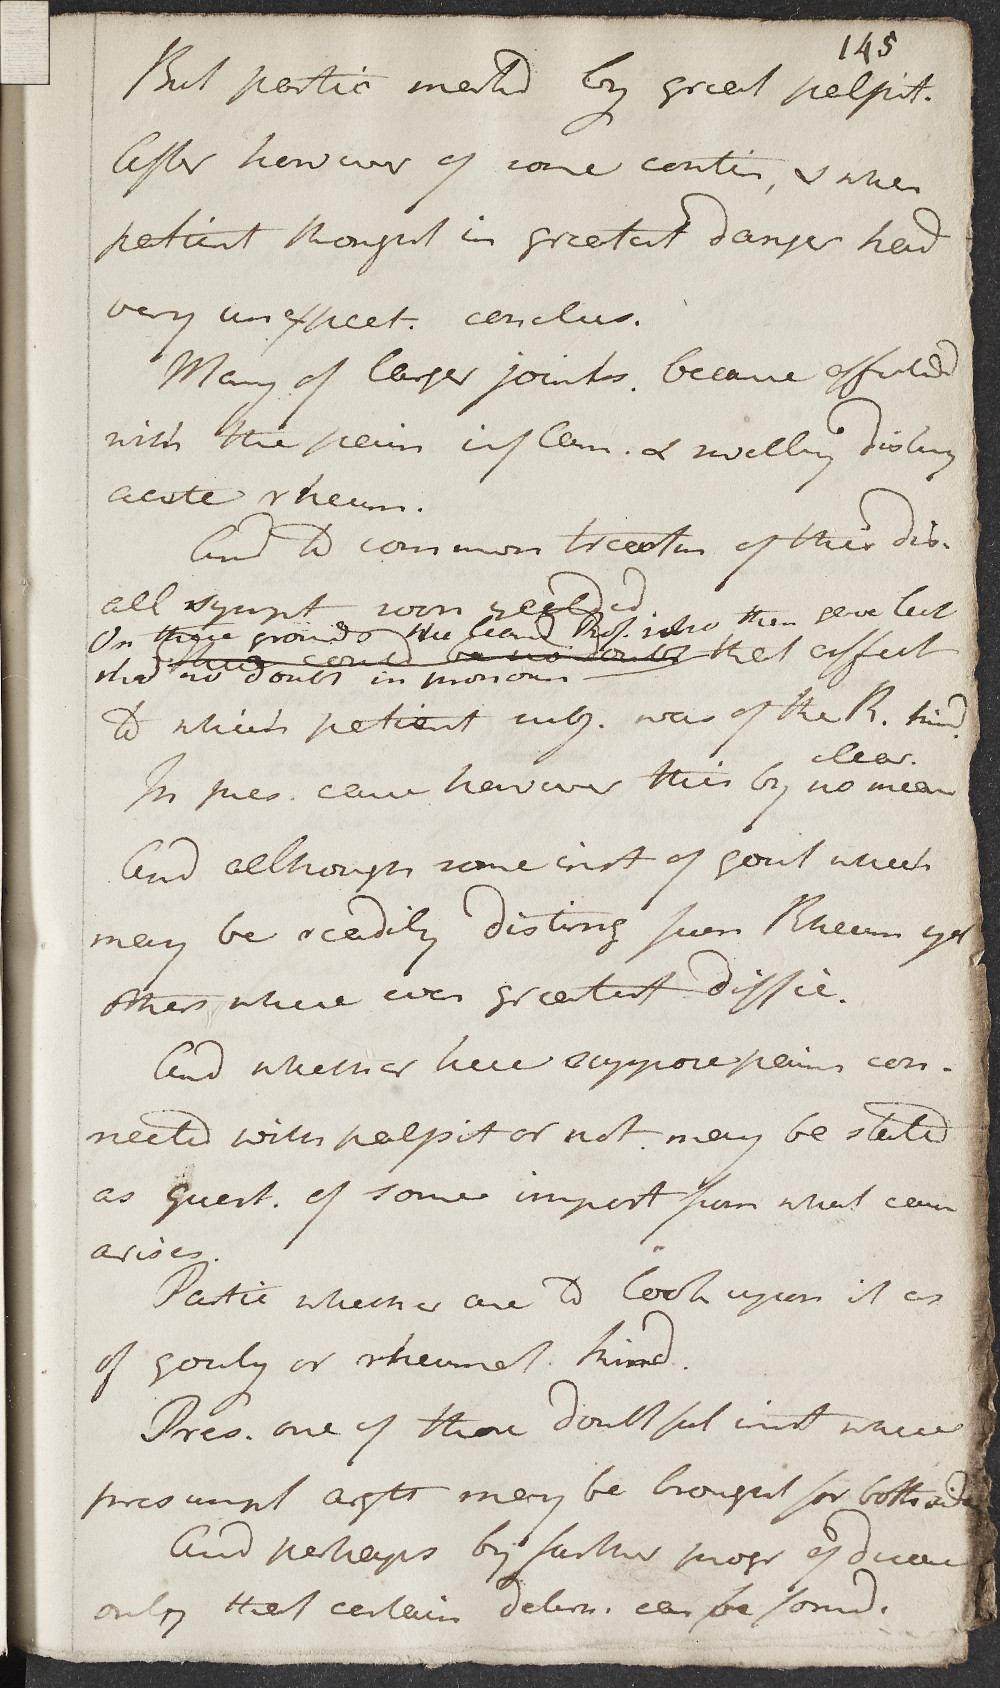 145
But partic markd by great palpit.
After however of some contin, & when
patient thought in greatest danger had
very unexpect. conclus.
Many of larger joints. became affected
with the pain inflam. & swelling disting
acute rheum.
And to common treatm of this dis.
all sympt soon yielded.
On these grounds the learnd Prof. who then gave lect
had no doubt in pronoun
This could be no doubt that affect
to which patient subj. was of the R. kind.
In pres. case however this by no mean
clear.
And although some inst of gout which
may be readily disting from Rheum yet
others where even greatest diffic.
And whether here suppose pains con-
nected with palpit or not may be stated
as quest. of some import from what caus
arises.
Partic whether are to look upon it as
of gouty or rheumat. kind.
Pres. one of those doubtful inst where
presumpt argts may be brought for both side
And perhaps by further progr of diseas
only that certain determ. can be formd.